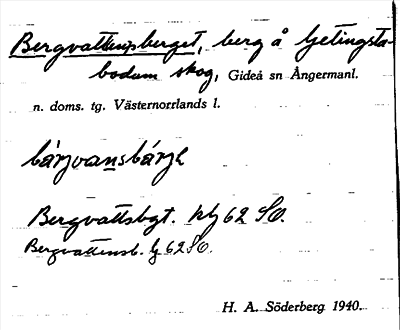 Bergvattensberget, berg å Getingsta-
bodum skog, Gideå sn Ångermanl.
n. doms. tg. Västernorrlands l.
bárjvansbárjl
Bergvattsbgt. 62 SO.
Bergvattensb. 62 SO.
H. A. Söderberg 1940.